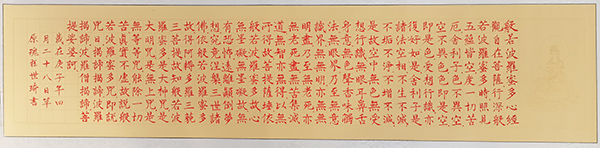 般若波羅蜜多心經
觀自在菩薩行深般
若波羅蜜多時照見
五蘊皆空度一切苦
厄舍利子色不異空
空不異色色即是空空
即是色受想行識亦
復如是舍利子是
諸法空相不生不滅
不垢不淨不增不減
是故空中無色無受
想行識無眼耳鼻舌
身意無色聲香味觸
法無眼界乃至無意
識界無無明亦無無
明盡乃至無老死亦
無老死盡無苦集滅
道無智亦無得以無
所得故菩提薩埵依
般若波羅蜜多故心
無罣礙無罣礙故無
有恐怖遠離顛倒夢
想究竟涅槃三世諸
佛依般若波羅蜜多
故得阿耨多羅三藐
三菩提故知般若波
羅蜜多是大神咒是
大明咒是無上咒是
無等等咒能除一切
苦真實不虛故說般
若波羅蜜多咒即說
咒曰揭諦揭諦波羅
揭諦波羅僧揭諦菩
提薩婆訶
歲在庚子年四
月二十八日草
原世琦書